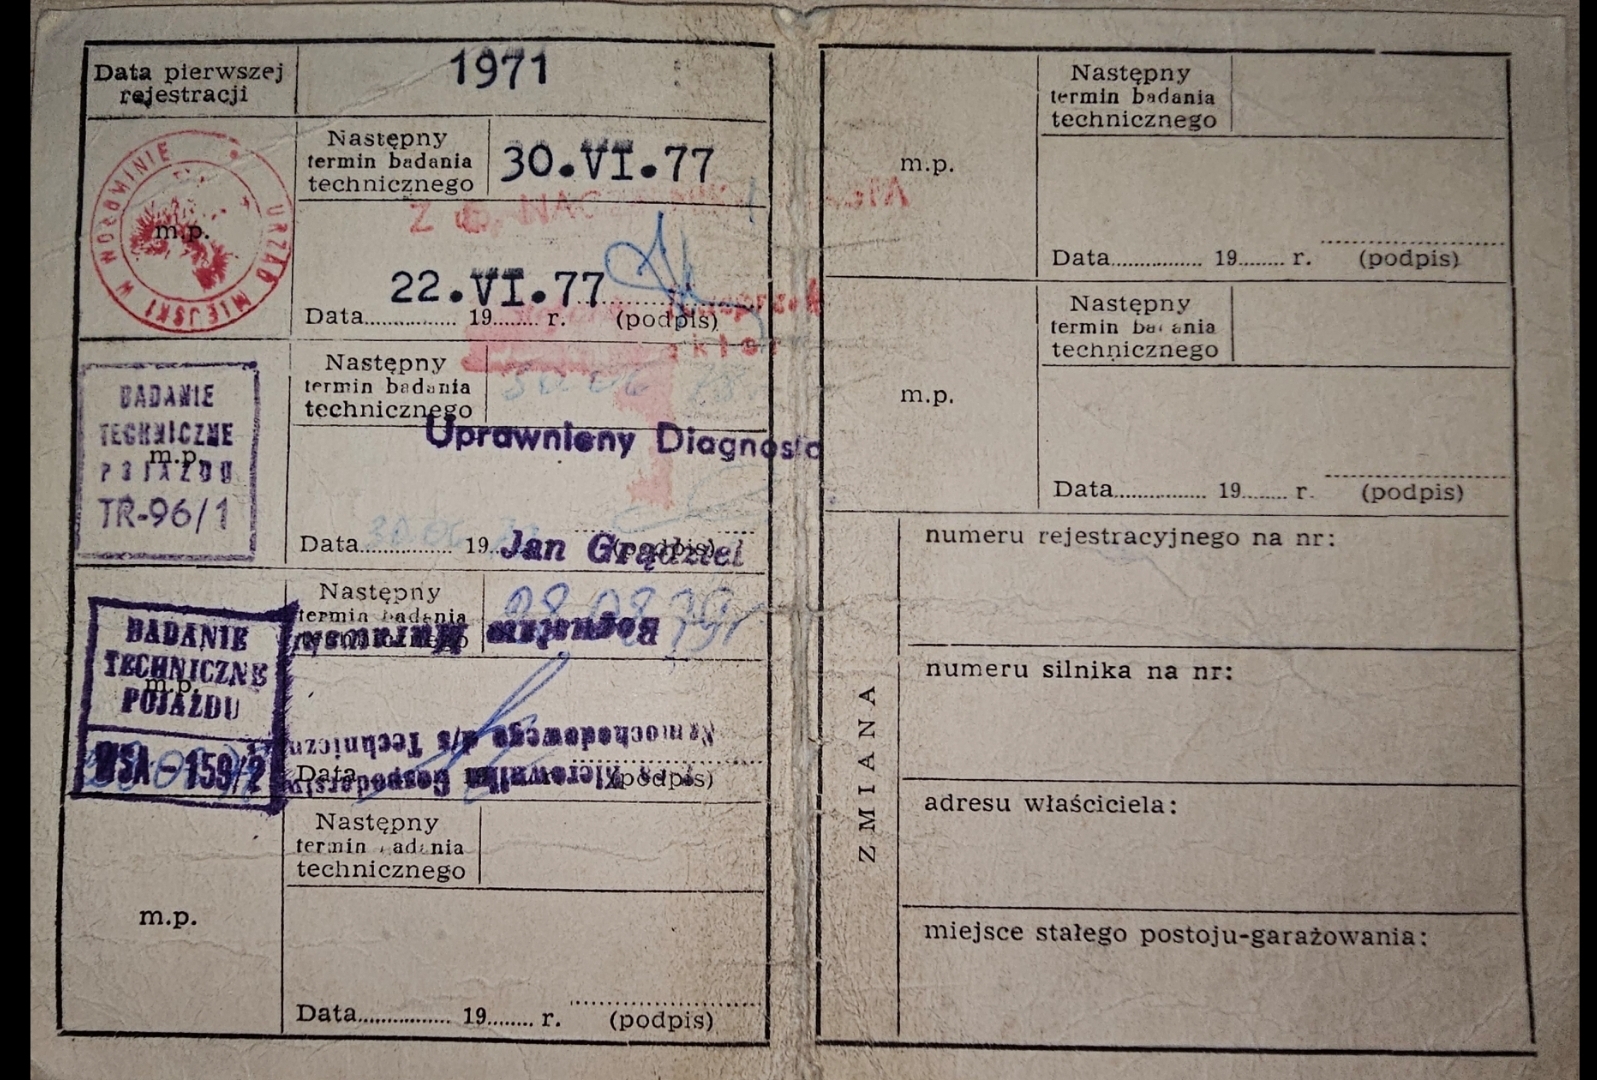 Data pierwszej
rejestracji
1971
Następny
termin badania
technicznego
30.VI.77
URZĄD MIEJSKI W WOŁOMINIE
m.p.
Z up.
22.VI.77
Data 19 r. (podpis)
Następny
termin badania
technicznego
30 06 78
BADANIE
TECHNICZNE
POJAZDU
TR-96/1
m.p.
Uprawniony Diagnosta
Data 19 (podpis)
Jan
Następny
termin badania
technicznego
08.08.79
Bogusław
BADANIE
TECHNICZNE
POJAZDU
159/2
m.p.
Samochodowego d/s Techniczn
Kierownika
Data (podpis)
Następny
termin badania
technicznego
m.p.
Data 19 r. (podpis)
Następny
termin badania
technicznego
m.p.
Data 19 r. (podpis)
Następny
termin badania
technicznego
m.p.
Data 19 r. (podpis)
ZMIANA
numeru rejestracyjnego na nr:
numeru silnika na nr:
adresu właściciela:
miejsce stałego postoju-garażowania: